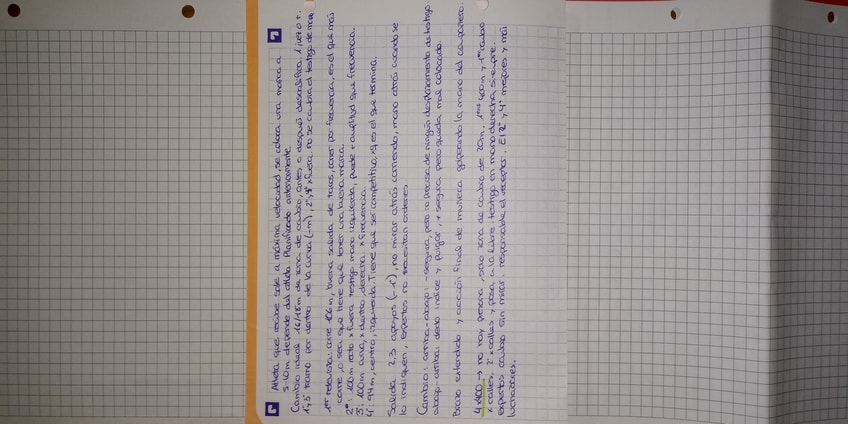 Atleta que recibe sale a máxima velocidad, se coloca una marca a
5-10m depende del atleta. Planificado anteriormente.
Cambio ideal 16/18m de zona de cambio, antes o después descalifica. 1,
1º, 3º tramo por dentro de la curva (-m), 2º, 4º x fuera, no se cambia el testigo de mano
1er relevista: corre 106m, buena salida de tacos, correr por frecuencia, es el que más
corre, o sea que tiene que tener una buena marca.
2º: 100m recto x fuera testigo mano izquierda, puede + amplitud que frecuencia.
3: 100m curva, x dentro, derecha x frecuencia.
4: 94m, centro, izquierda. Tiene que ser competitivo, xq es el que termina.
Salida 2,3 apoyos, no mirar atrás corriendo, mano atrás cuando se
lo indiquen, expertos no necesitan ordenes
Cambio: arriba-abajo: -segura, pero no precisa de ningún desplazamiento de testigo
abajo-arriba: dedo indice y pulgar, + segura pero queda mal colocado.
Brazo extendido y acción final de muñeca golpeando la mano del compañero.
4x400 → no hay prezona, solo zona de cambio de 20m, 1eros 400m y 1er cambio
x calles, 2º x calles y pasa a la libre. testigo en mano derecha siempre.
expertos cambio sin mirar, responsable el receptor. El 2º y 4º mejores y más
luchadores.